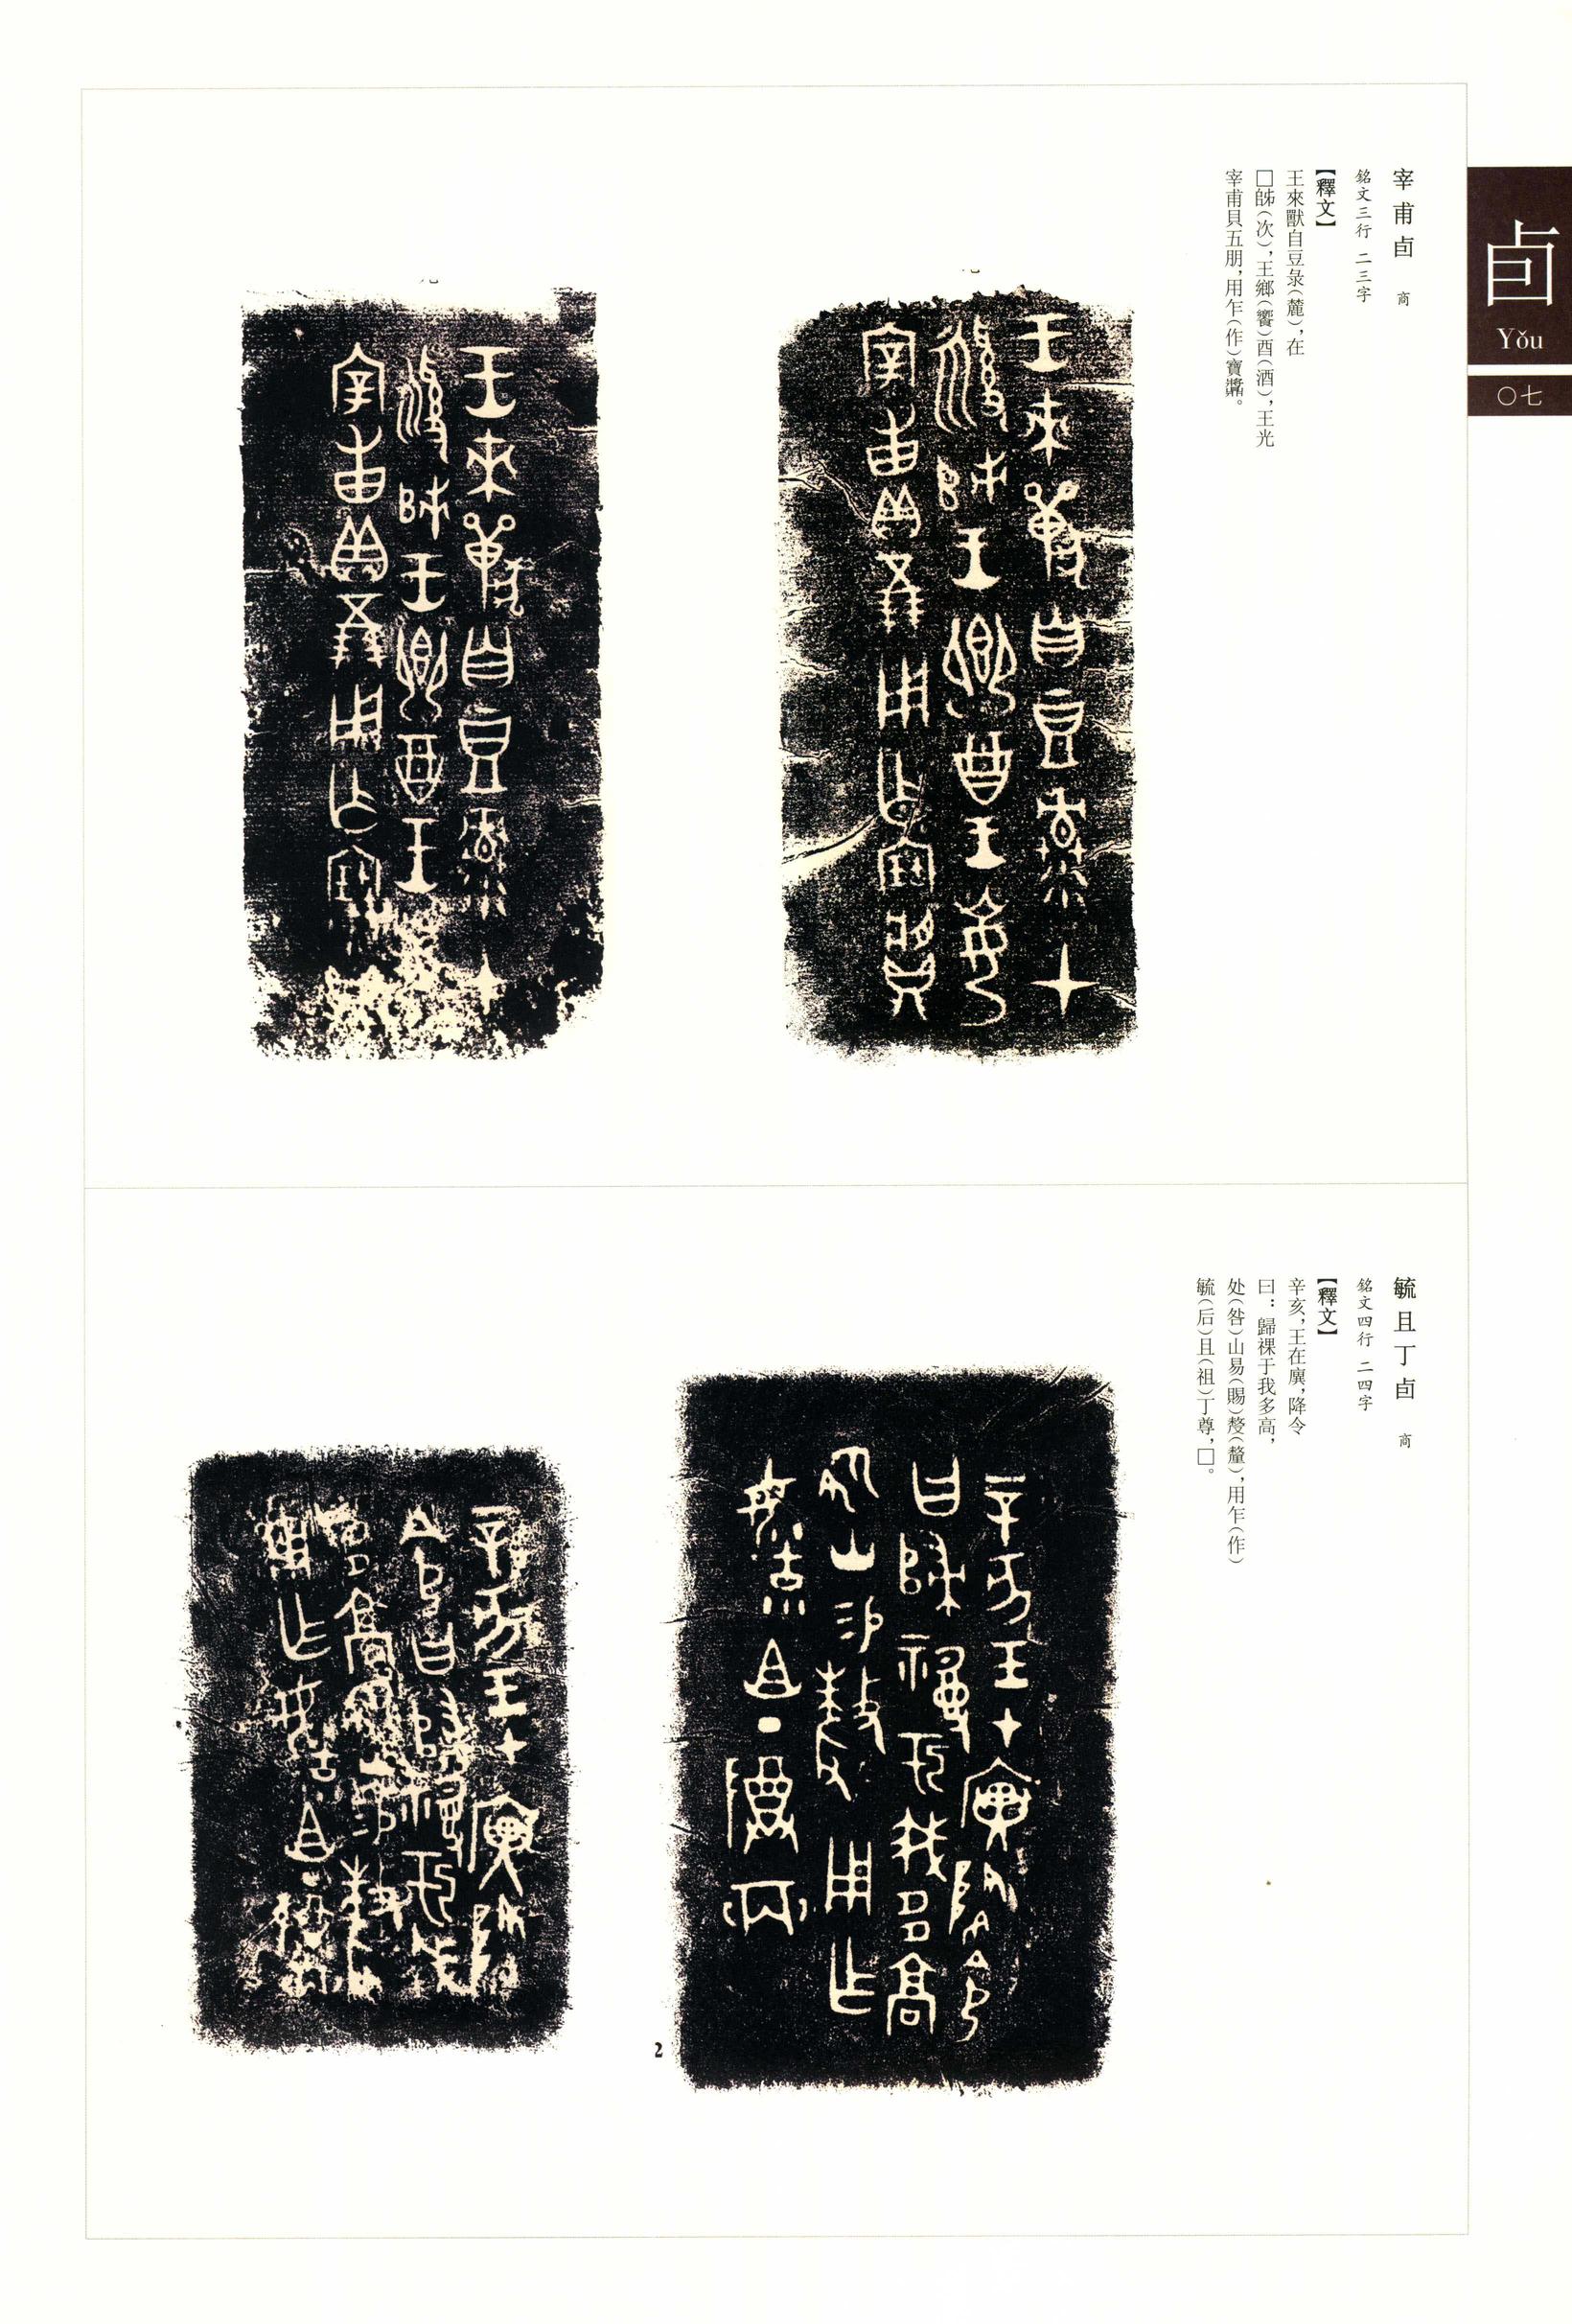 卣
Yǒu
〇七
宰甫卣 商
銘文三行 二三字
【釋文】
王來獸自豆彔（麓），在
□𠂤（次），王鄉（饗）酉（酒），王光
宰甫貝五朋，用乍（作）寶𩰬。
毓且丁卣 商
銘文四行 二四字
【釋文】
辛亥，王在廙，降令
曰：歸祼于我多高，
处（咎）山易（賜）𠭰（釐），用乍（作）
毓（后）且（祖）丁尊，□。
2